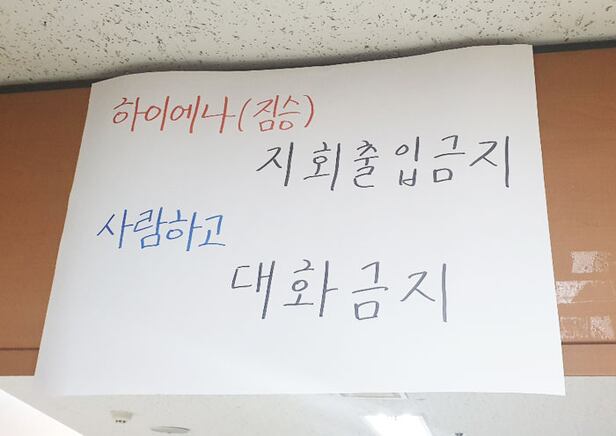 하이에나(짐승)
지회출입금지
사람하고
대화금지